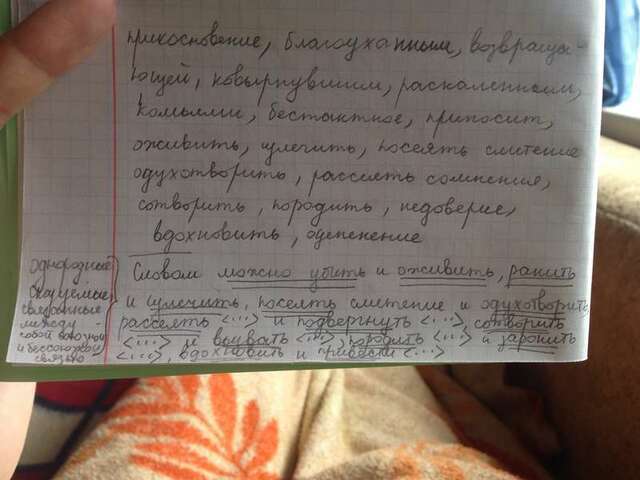 прикосновение, благоуханным, возвращa-
ющей, ковырнувшим, раскаленным,
комьями, бестактное, приносит,
оживить, излечить, посеять смятение
одухотворить, рассеять сомнения,
сотворить, породить, недоверие,
вдохновить, оцепенение
Словом можно убить и оживить, ранить
и излечить, посеять смятение и одухотворить,
рассеять <...> и подвергнуть <...>, сотворить
<...> и <...>, породить <...> и заронить
<...>, вдохновить и привести <...>
однородные
сказуемые
связанные
между
собой союзной
и бессоюзной
связью